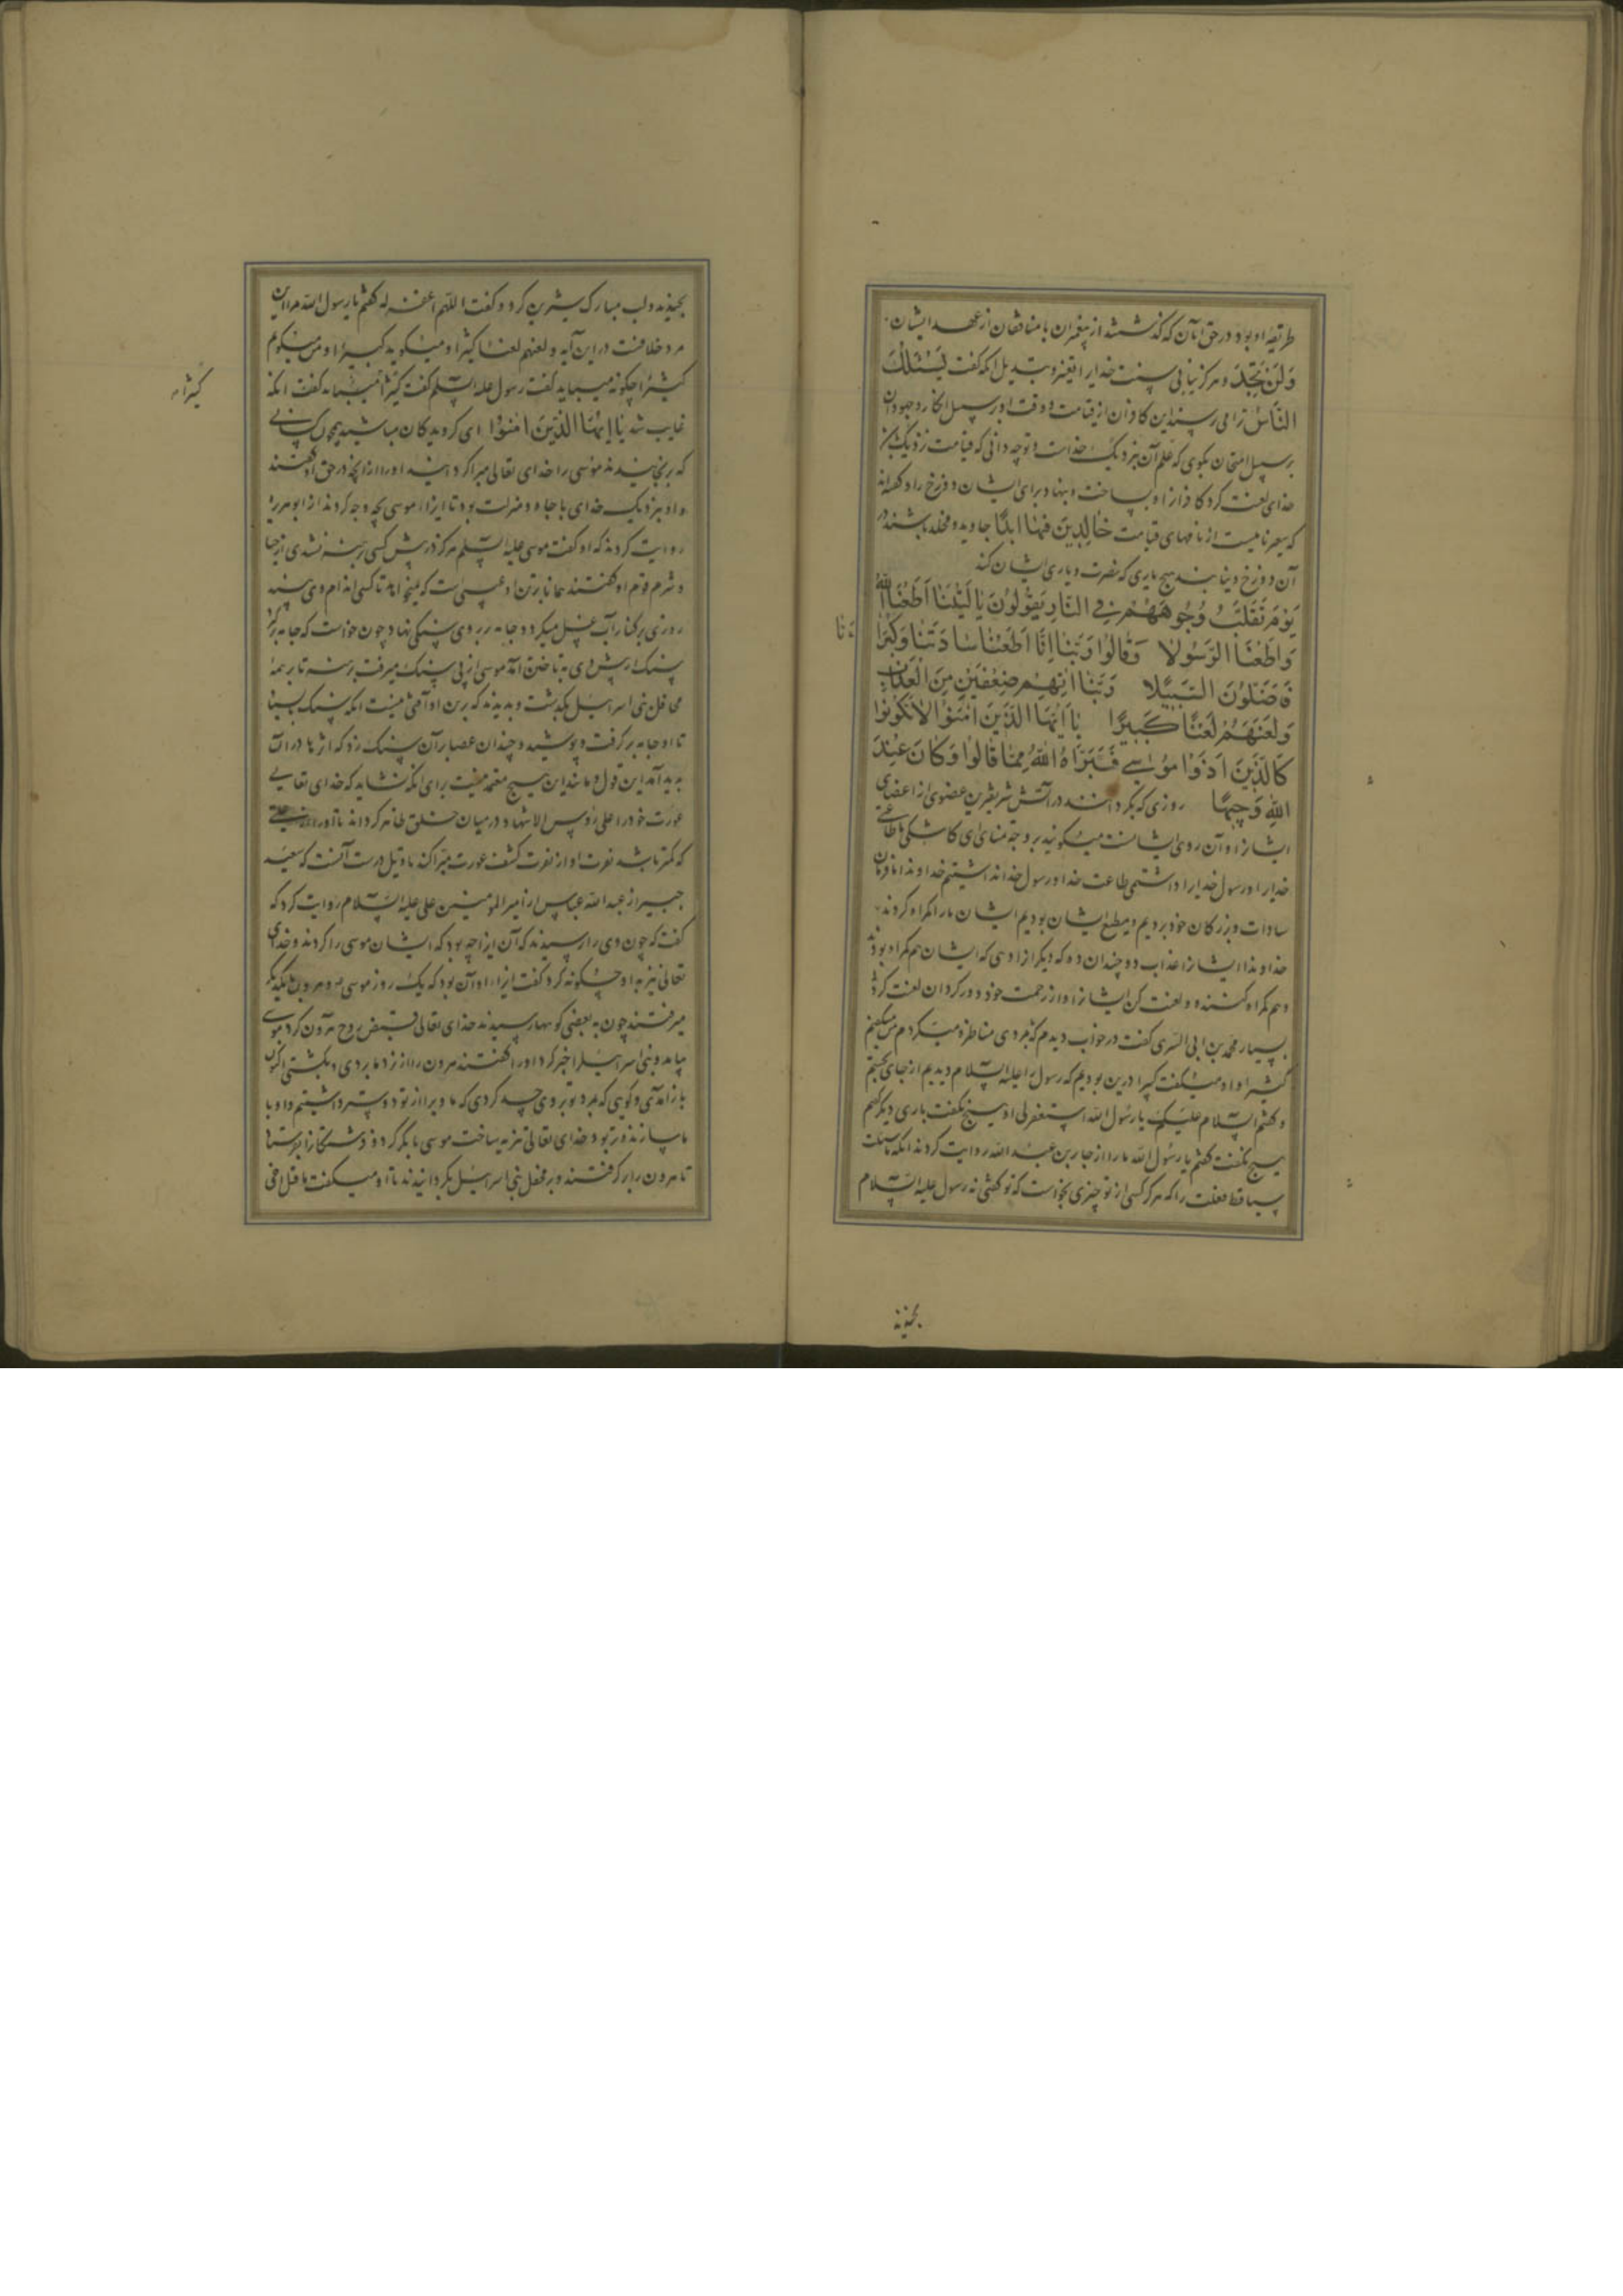 طریقهٔ او بود در حق آنان که گذشتند از پیغمبران با منافقان از عهد ایشان.
وَلَنْ تَجِدَ و هرگز نیابی سنت خدایرا تغییر و تبدیل آنکه گفت یَسْئَلُكَ
النّاسُ ترا می پرسند این کافران از قیامت و وقت او بر سبیل انکار و جهودان
بر سبیل امتحان بگوی که علم آن بنزدیک خداست و تو چه دانی که قیامت نزدیک
خدای لعنت کرد کافرانرا و بساخت و بنهاد برای ایشان دوزخ را و گفته‌اند
که سعیر نامیست از نامهای قیامت خالِدینَ فیها اَبَدًا جاوید و مخلد باشند در
آن دوزخ و نیابند هیچ یاری که نصرت و یاری ایشان کند
یَوْمَ تُقَلَّبُ وُجُوهُهُمْ فِی النّارِ یَقُولُونَ یا لَیْتَنا اَطَعْنَا اللّٰهَ
وَاَطَعْنَا الرَّسُولا وَقالُوا رَبَّنا اِنّا اَطَعْنا سادَتَنا وَكُبَراءَ
نانا
فَاَضَلُّونَ السَّبیلا رَبَّنا اٰتِهِمْ ضِعْفَیْنِ مِنَ الْعَذابِ
وَلَعَنَهُمْ لَعْنًا كَبیرًا یا اَیُّهَا الَّذینَ اٰمَنُوا لا تَكُونُوا
كَالَّذینَ اٰذَوْا مُوسی فَبَرَّاَهُ اللّٰهُ مِمّا قالُوا وَكانَ عِنْدَ
اللّٰهِ وَجیهًا روزی که بگردانند در آتش شریفترین عضوی از اعضای
ایشانرا و آن روی ایشانست میگویند بر وجه تمنا ای کاشکی ما طاعت
خدایرا و رسول خدایرا داشتمی طاعت خدا و رسول خدا نداشتیم خداوندا ما فرمان
سادات و بزرگان خود بردیم و مطیع ایشان بودیم ایشان ما را گمراه کردند
خداوندا ایشانرا عذاب دو چندان ده که دیگرانرا دهی که ایشان هم گمراه بودند
و هم گمراه کننده و لعنت کن ایشانرا و از رحمت خود دور گردان لعنت کردنی
بسیار محمد بن ابی السری گفت در خواب دیدم که با مردی مناظره میکردم من میگفتم
کثیرا و او میگفت کبیرا درین بودیم که رسول را علیه السلام دیدیم از جای بجستم
و گفتم السلام علیک یا رسول الله استغفر لی او هیچ نگفت باری دیگر گفتم
هیچ نگفت گفتم یا رسول الله ما را از جابر بن عبد الله روایت کردند انکه ما سئلت
شیئا قط فقلت لا که هرگز کسی از تو چیزی نخواست که تو گفتی نه رسول علیه السلام
بخندید
بخندید و لب مبارک شیرین کرد و گفت اللهم اغفر له گفتم یا رسول الله مرا این
مرد خلافست در این آیه و لعنهم لعنا کثیرا و میگوید کبیرا و من میگویم
کثیرا چگونه میباید گفت رسول علیه السلم گفت کثیرا میباید گفت انکه
کثیرا
غایب شد یا اَیُّهَا الَّذینَ اٰمَنُوا ای گرویدگان مباشید چون کسانی
که برنجانیدند موسی را خدای تعالی مبرا گردانید او را از آنچه در حق او گفتند
و او بنزدیک خدای با جاه و منزلت بود تا ایذاء موسی بچه وجه کردند از ابو هریره
روایت کردند که او گفت موسی علیه السلم هرگز در پیش کسی برهنه نشدی از حیا
و شرم قوم او گفتند همانا بر تن او عیبی است که نمیخواهد تا کسی اندام وی بیند
روزی بر کنار آب غسل میکرد و جامه بر روی سنگی نهاد چون خواست که جامه برگیرد
سنگ از پیش وی بتاختن آمد موسی از پی سنگ میرفت برهنه تا بر همه
محافل بنی اسرائیل بگذشت و بدیدند که بر تن او آفتی نیست انکه سنگ بایستاد
تا او جامه برگرفت و بپوشید و چندان عصا بر آن سنگ زد که اثرها در آن
پدید آمد این قول و مانند این هیچ معتمد نیست برای آنکه نشاید که خدای تعالی
عورت خود را علی رؤس الاشهاد در میان خلق ظاهر گرداند تا او را از عیبی
که کمتر باشد نفرت او از نفرت کشف عورت مبرا کند تاویل درست آنست که سعید
جبیر از عبد الله عباس از امیر المومنین علی علیه السلام روایت کرد که
گفت که چون وی را پرسیدند که آن ایذا چه بود که ایشان موسی را کردند و خدای
تعالی تبرئه او چگونه کرد گفت ایذاء او آن بود که یک روز موسی و هرون با یکدیگر
میرفتند چون به بعضی کوهها رسیدند خدای تعالی قبض روح هرون کرد موسی
بیامد و بنی اسرائیلرا خبر کرد او را گفتند هرون را از نزد ما بردی و بکشتی اکنون
باز آمدی و گویی که بمرد تو بر وی حسد کردی که ما ویرا از تو دوستر داشتیم و او با
ما سازنده‌تر بود خدای تعالی تنزیه ساخت موسی ما بگرد و فرشتگانرا بفرستاد
تا هرون را برگرفتند و بر محفل بنی اسرائیل بگردانیدند تا او میگفت ما قتل اخی